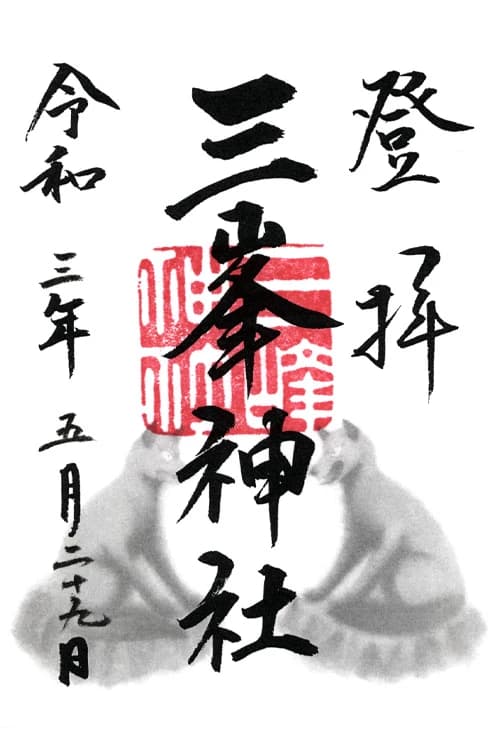 登拝
三峯神社
令和三年五月二十九日